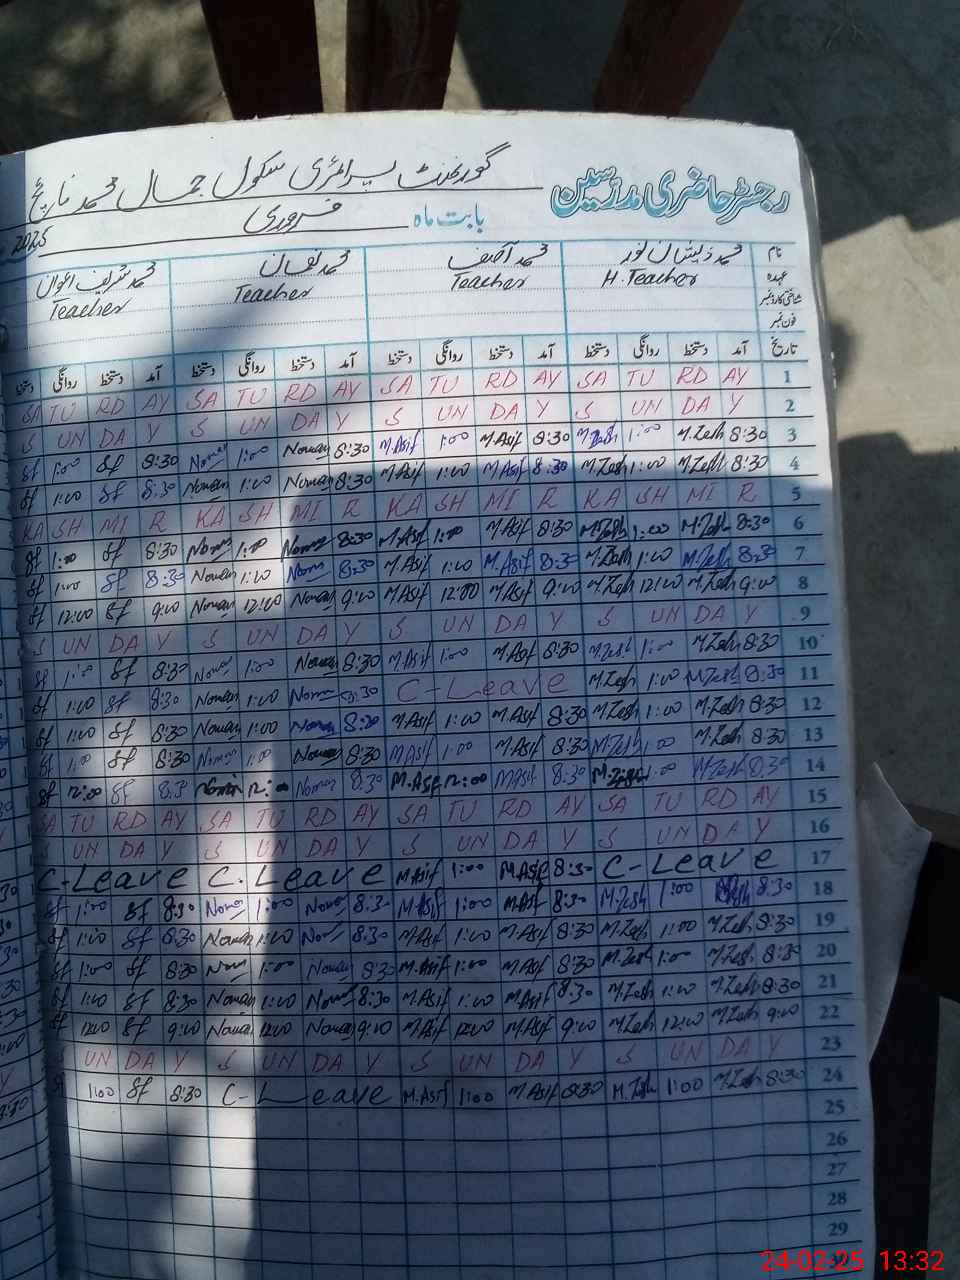 رجسٹر حاضری مدرسین گورنمنٹ پرائمری سکول جمال محمد
بابت ماہ فروری 2025
نام محمد ذیشان نور محمد آصف محمد نعمان محمد شریف اعوان
عہدہ H. Teacher Teacher Teacher Teacher
شناختی کارڈ نمبر
فون نمبر
تاریخ آمد دستخط روانگی دستخط آمد دستخط روانگی دستخط آمد دستخط روانگی دستخط آمد دستخط روانگی دستخط
SA TU RD AY SA TU RD AY SA TU RD AY SA TU RD AY 1
S UN DA Y S UN DA Y S UN DA Y S UN DA Y 2
1:00 8:30 Noman 1:00 Noman 8:30 M.Asif 1:00 M.Asif 8:30 M.Zesh 1:00 M.Zesh 8:30 3
1:00 8:30 Noman 1:00 Noman 8:30 M.Asif 1:00 M.Asif 8:30 M.Zesh 1:00 M.Zesh 8:30 4
KA SH MI R KA SH MI R KA SH MI R KA SH MI R 5
1:00 8:30 Noman 1:00 Noman 8:30 M.Asif 1:00 M.Asif 8:30 M.Zesh 1:00 M.Zesh 8:30 6
1:00 8:30 Noman 1:00 Noman 8:30 M.Asif 1:00 M.Asif 8:30 M.Zesh 1:00 M.Zesh 8:30 7
12:00 9:00 Noman 12:00 Noman 9:00 M.Asif 12:00 M.Asif 9:00 M.Zesh 12:00 M.Zesh 9:00 8
S UN DA Y S UN DA Y S UN DA Y S UN DA Y 9
1:00 8:30 Noman 1:00 Noman 8:30 M.Asif 1:00 M.Asif 8:30 M.Zesh 1:00 M.Zesh 8:30 10
1:00 8:30 Noman 1:00 Noman 8:30 C-Leave M.Zesh 1:00 M.Zesh 8:30 11
1:00 8:30 Noman 1:00 Noman 8:30 M.Asif 1:00 M.Asif 8:30 M.Zesh 1:00 M.Zesh 8:30 12
1:00 8:30 Noman 1:00 Noman 8:30 M.Asif 1:00 M.Asif 8:30 M.Zesh 1:00 M.Zesh 8:30 13
12:00 8:30 Noman 12:00 Noman 8:30 M.Asif 12:00 M.Asif 8:30 M.Zesh 1:00 M.Zesh 8:30 14
SA TU RD AY SA TU RD AY SA TU RD AY SA TU RD AY 15
S UN DA Y S UN DA Y S UN DA Y S UN DA Y 16
C-Leave C.Leave M.Asif 1:00 M.Asif 8:30 C-Leave 17
1:00 8:30 Noman 1:00 Noman 8:30 M.Asif 1:00 M.Asif 8:30 M.Zesh 1:00 8:30 18
1:00 8:30 Noman 1:00 Noman 8:30 M.Asif 1:00 M.Asif 8:30 M.Zesh 1:00 M.Zesh 8:30 19
1:00 8:30 Noman 1:00 Noman 8:30 M.Asif 1:00 M.Asif 8:30 M.Zesh 1:00 M.Zesh 8:30 20
1:00 8:30 Noman 1:00 Noman 8:30 M.Asif 1:00 M.Asif 8:30 M.Zesh 1:00 M.Zesh 8:30 21
12:00 9:00 Noman 12:00 Noman 9:00 M.Asif 12:00 M.Asif 9:00 M.Zesh 12:00 M.Zesh 9:00 22
S UN DA Y S UN DA Y S UN DA Y S UN DA Y 23
1:00 8:30 C-Leave M.Asif 1:00 M.Asif 8:30 M.Zesh 1:00 M.Zesh 8:30 24
25
26
27
28
29
24-02-25 13:32